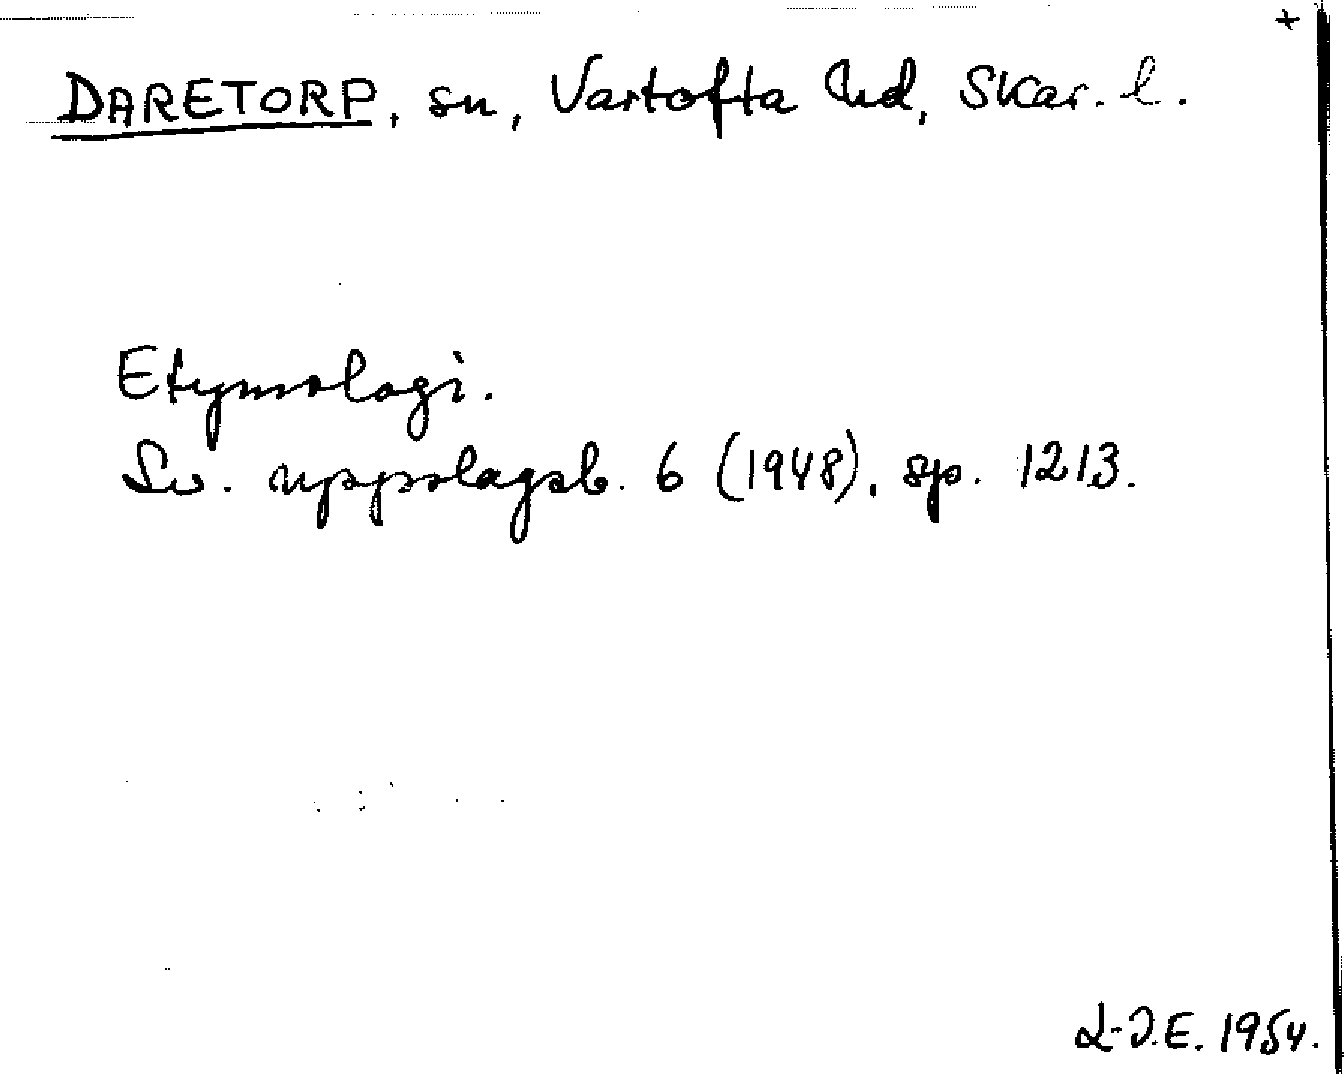 +
DARETORP, sn, Vartofta hd, Skar. l.
Etymologi.
Sv. uppslagsb. 6 (1948), sp. 1213.
L-I.E. 1954.